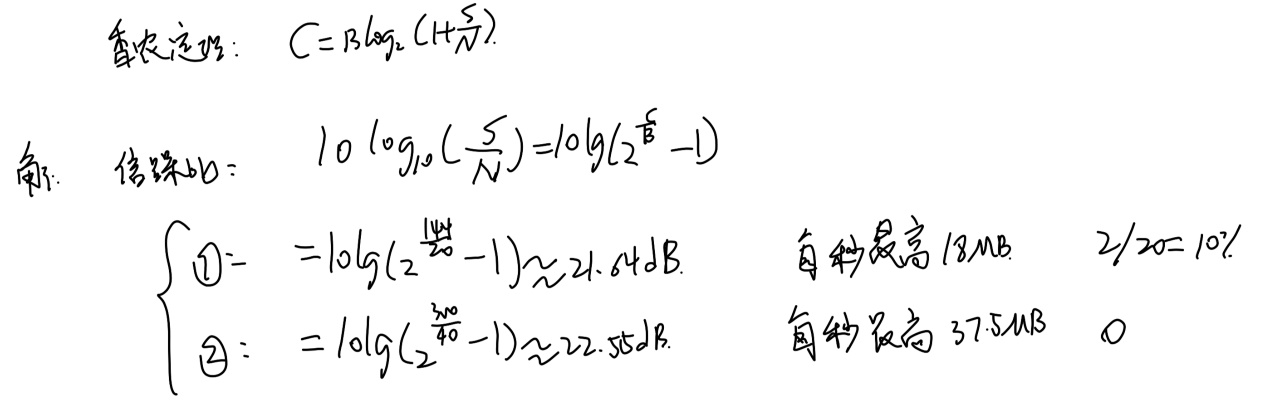 香农定理: C=Blog₂(1+S/N).
解: 信噪比: 10 log₁₀(S/N)=10lg(2^(C/B)-1)
①= =10lg(2^(144/20)-1)≈21.64dB. 每秒最高18MB. 2/20=10%
②: =10lg(2^(300/40)-1)≈22.55dB. 每秒最高37.5MB 0